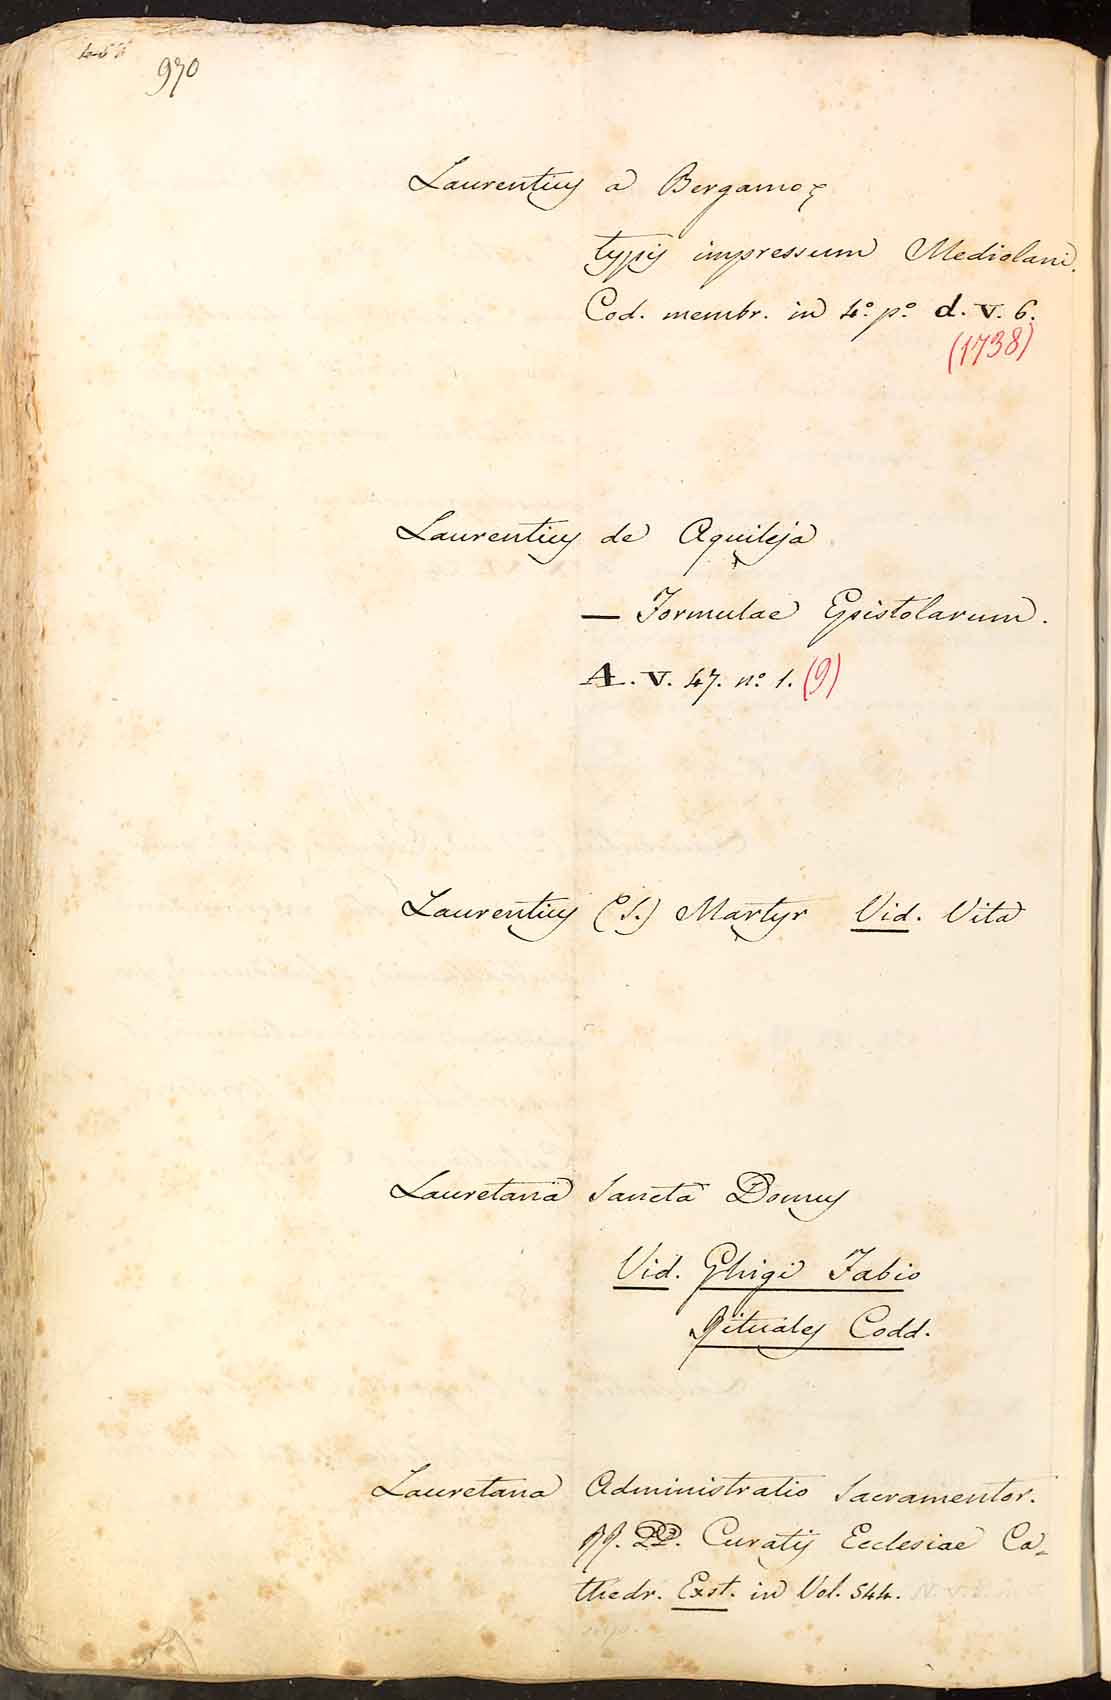 970
Laurentius a Bergamo
typis impressum Mediolani.
Cod. membr. in 4.o p.o d. V. 6.
(1738)
Laurentius de Aquileja
— Formulae Epistolarum.
A. V. 47. n.o 1. (9)
Laurentius (S.) Martyr Vid. Vita
Lauretana Sancta Domus
Vid. Ghigi Fabio
Rituales Codd.
Lauretana Administratio Sacramentor.
RR. PP. Curatis Ecclesiae Ca-
thedr. Exst. in Vol. 544.